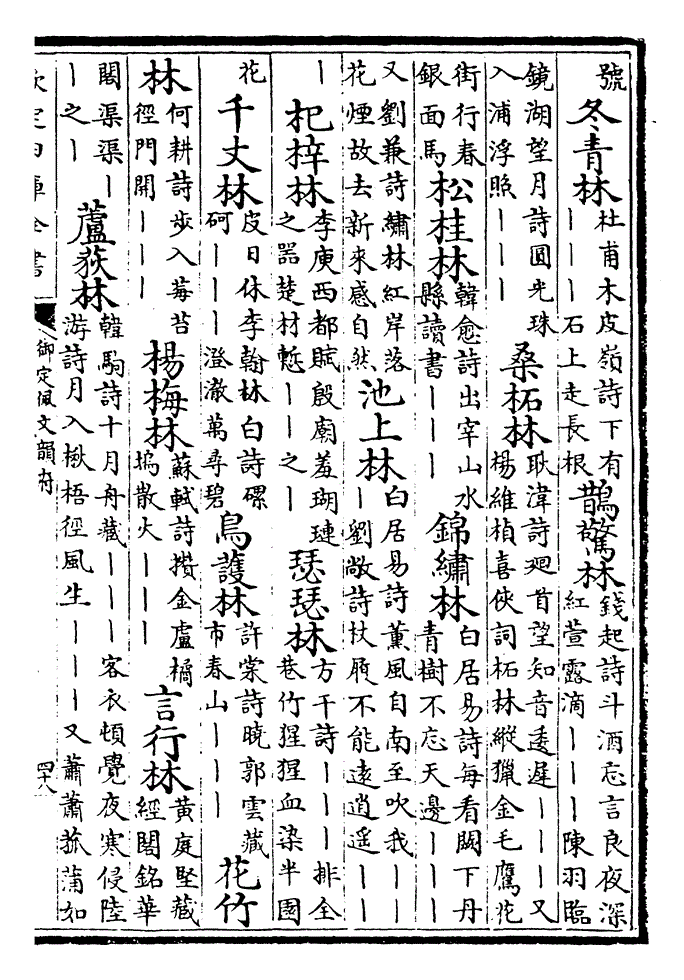 號冬青林杜甫木皮嶺詩下有｜｜｜石上走長根鵲驚林錢起詩斗酒忘言良夜深紅萱露滴｜｜｜陳羽臨
鏡湖望月詩圓光珠入浦浮照｜｜｜桑柘林耿湋詩廻首望知音逶遲｜｜｜又楊維楨喜俠詞柘林縱獵金毛鷹花
街行春銀面馬松桂林韓愈詩出宰山水縣讀書｜｜｜錦繡林白居易詩每看闕下丹青樹不忘天邊｜｜｜
又劉兼詩繡林紅岸落花煙故去新來感自然池上林白居易詩薰風自南至吹我｜｜｜劉敞詩杖屨不能遠逍遥｜｜
｜杞梓林李庾西都賦殷廟羞瑚璉之器楚材慙｜｜之｜瑟瑟林方干詩｜｜｜排全巷竹猩猩血染半園
花千丈林皮日休李翰林白詩磥砢｜｜｜澄澈萬尋碧烏護林許棠詩曉郭雲藏市春山｜｜｜花竹
林何耕詩步入莓苔徑門開｜｜｜楊梅林蘇軾詩攢金盧橘塢散火｜｜｜言行林黃庭堅藏經閣銘華
閣渠渠｜｜之｜蘆荻林韓駒詩十月舟藏｜｜｜客衣頓覺夜寒侵陸游詩月入楸梧徑風生｜｜｜又蕭蕭菰蒲如
欽定四庫全書
御定佩文韻府
四十八